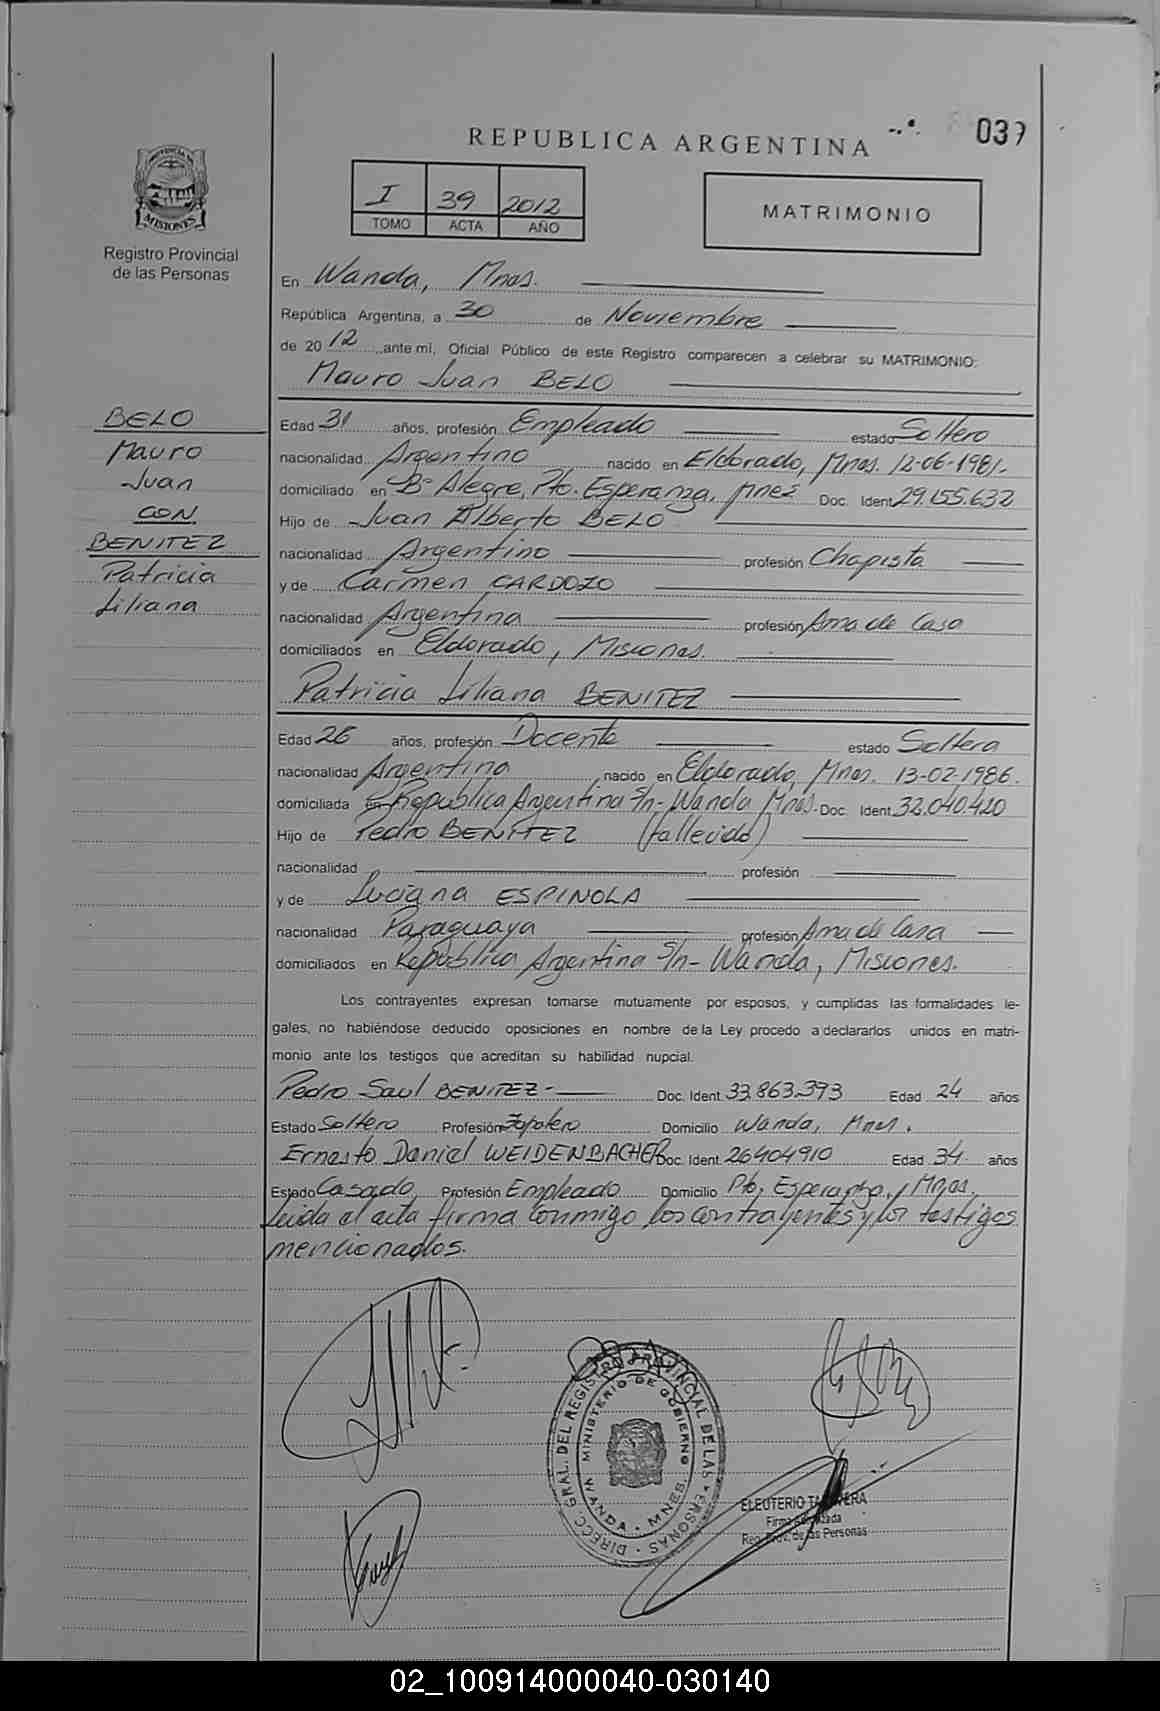 REPUBLICA ARGENTINA
039
PROVINCIA DE
MISIONES
Registro Provincial
de las Personas
I 39 2012
TOMO ACTA AÑO
MATRIMONIO
En Wanda, Mnes.
República Argentina, a 30 de Noviembre
de 2012, ante mi, Oficial Público de este Registro comparecen a celebrar su MATRIMONIO:
Mauro Juan BELO
BELO
Mauro
Juan
CON
BENITEZ
Patricia
Liliana
Edad 31 años, profesión Empleado estado Soltero
nacionalidad Argentino nacido en Eldorado, Mnes. 12-06-1981.
domiciliado en Bº Alegre, Pto. Esperanza, Mnes Doc. Ident 29.155.632
Hijo de Juan Alberto BELO
nacionalidad Argentino profesión Chapista
y de Carmen CARDOZO
nacionalidad Argentina profesión Ama de Casa
domiciliados en Eldorado, Misiones.
Patricia Liliana BENITEZ
Edad 26 años, profesión Docente estado Soltera
nacionalidad Argentina nacido en Eldorado, Mnes. 13-02-1986.
domiciliada en República Argentina S/n- Wanda Mnes. Doc. Ident 32.040.420
Hijo de Pedro BENITEZ (fallecido)
nacionalidad profesión
y de Luciana ESPINOLA
nacionalidad Paraguaya profesión Ama de Casa
domiciliados en República Argentina S/n- Wanda, Misiones.
Los contrayentes expresan tomarse mutuamente por esposos, y cumplidas las formalidades le-
gales, no habiéndose deducido oposiciones en nombre de la Ley procedo a declararlos unidos en matri-
monio ante los testigos que acreditan su habilidad nupcial.
Pedro Saul BENITEZ- Doc. Ident 33.863.393 Edad 24 años
Estado Soltero Profesión Zapatero Domicilio Wanda, Mnes.
Ernesto Daniel WEIDENBACHER Doc. Ident 26404910 Edad 34 años
Estado Casado Profesión Empleado Domicilio Pto. Esperanza, Mnes.
Leida el acta firma conmigo los contrayentes y los testigos
mencionados.
DIRECC. GRAL. DEL REGISTRO PROVINCIAL DE LAS PERSONAS
MINISTERIO DE GOBIERNO
WANDA - MNES.
ELEUTERIO
Firma
Reg. Prov. de las Personas
02_100914000040-030140